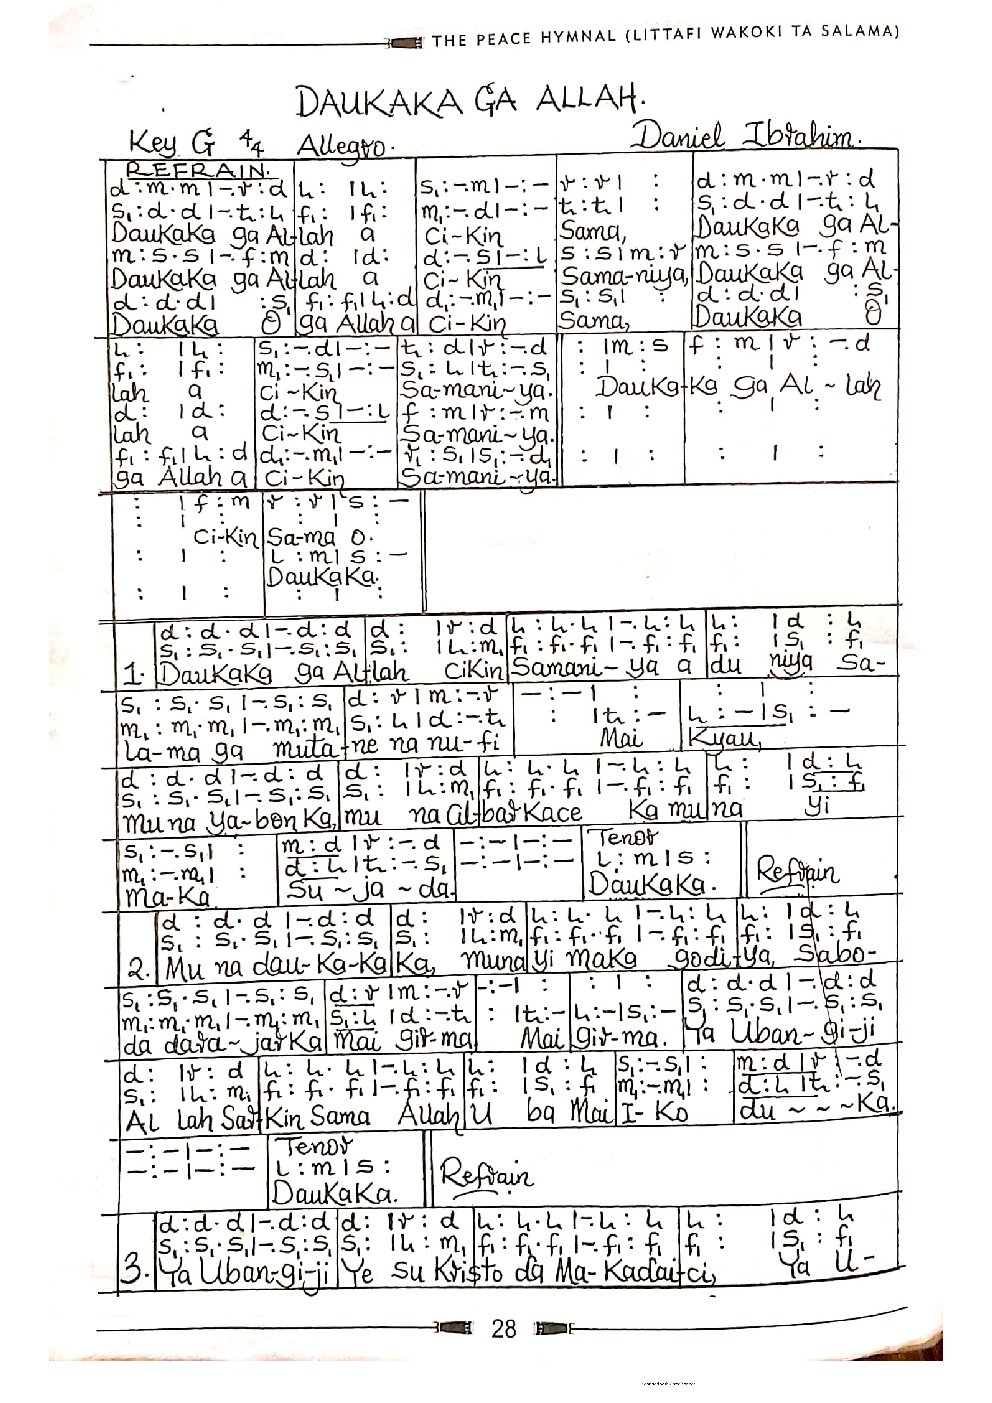 THE PEACE HYMNAL (LITTAFI WAKOKI TA SALAMA)
DAUKAKA GA ALLAH.
Key G 4/4 Allegro. Daniel Ibrahim.
REFRAIN.
d : m . m | - . r : d | l₁ : | l₁ : | s₁ : - . m | - : - | r : r | : | d : m . m | - . r : d
s₁ : d . d | - . t₁ : l₁ | f₁ : | f₁ : | m₁ : - . d | - : - | t₁ : t₁ | : | s₁ : d . d | - . t₁ : l₁
Daukaka ga Al-lah a Ci-Kin Sama, Daukaka ga Al-
m : s . s | - . f : m | d : | d : | d : - . s | - : L | s : s | m : r | m : s . s | - . f : m
Daukaka ga Al-lah a Ci-Kin Sama-niya, Daukaka ga Al-
d : d . d | : s₁ | f₁ : f₁ | l₁ : d | d₁ : - . m₁ | - : - | s₁ : s₁ | : | d : d . d | : s₁
Daukaka O ga Allah a Ci-Kin Sama, Daukaka O
l₁ : | l₁ : | s₁ : - . d | - : - | t₁ : d | r : - . d | : | m : s | f : m | r : - . d
f₁ : | f₁ : | m₁ : - . s₁ | - : - | s₁ : l₁ | t₁ : - . s₁ | : | : | : | :
lah a Ci-Kin Sa-mani-ya. Dauka-Ka ga Al ~ lah
d : | d : | d : - . s | - : L | f : m | r : - . m | : | : | : | :
lah a Ci-Kin Sa-mani~ya.
f₁ : f₁ | l₁ : d | d₁ : - . m₁ | - : - | r₁ : s₁ | s₁ : - . d₁ | : | : | : | :
ga Allah a Ci-Kin Sa-mani~ya.
: | f : m | r : r | s : -
: | : | : | :
Ci-Kin Sa-ma O.
: | : | L : m | s : -
Daukaka.
: | : | : | :
d : d . d | - . d : d | d : | r : d | l₁ : l₁ . l₁ | - . l₁ : l₁ | l₁ : | d : l₁
s₁ : s₁ . s₁ | - . s₁ : s₁ | s₁ : | l₁ : m₁ | f₁ : f₁ . f₁ | - . f₁ : f₁ | f₁ : | s₁ : f₁
1. Daukaka ga Al-lah ciKin Samani-ya a du niya Sa-
s₁ : s₁ . s₁ | - . s₁ : s₁ | d : r | m : - . r | - : - | : | : | :
m₁ : m₁ . m₁ | - . m₁ : m₁ | s₁ : l₁ | d : - . t₁ | : | t₁ : - | l₁ : - | s₁ : -
la-ma ga muta-ne na nu-fi Mai Kyau,
d : d . d | - . d : d | d : | r : d | l₁ : l₁ . l₁ | - . l₁ : l₁ | l₁ : | d : l₁
s₁ : s₁ . s₁ | - . s₁ : s₁ | s₁ : | l₁ : m₁ | f₁ : f₁ . f₁ | - . f₁ : f₁ | f₁ : | s₁ : f₁
Mu na ya-bon Ka, mu na al-barkace Ka mu na yi
s₁ : - . s₁ | : | m : d | r : - . d | - : - | - : - | Tenor
m₁ : - . m₁ | : | d : l₁ | t₁ : - . s₁ | - : - | - : - | L : m | s :
ma-Ka Su ~ ja ~ da. Daukaka. Refrain
d : d . d | - . d : d | d : | r : d | l₁ : l₁ . l₁ | - . l₁ : l₁ | l₁ : | d : l₁
s₁ : s₁ . s₁ | - . s₁ : s₁ | s₁ : | l₁ : m₁ | f₁ : f₁ . f₁ | - . f₁ : f₁ | f₁ : | s₁ : f₁
2. Mu na dau-Ka-Ka Ka, muna yi maka godi-ya, Sabo-
s₁ : s₁ . s₁ | - . s₁ : s₁ | d : r | m : - . r | - : - | : | : | : | d : d . d | - . d : d
m₁ : m₁ . m₁ | - . m₁ : m₁ | s₁ : l₁ | d : - . t₁ | : | t₁ : - | l₁ : - | s₁ : - | s₁ : s₁ . s₁ | - . s₁ : s₁
da dara~jarKa Mai gir-ma Mai gir-ma. Ya Uban-gi-ji
d : | r : d | l₁ : l₁ . l₁ | - . l₁ : l₁ | l₁ : | d : l₁ | s₁ : - . s₁ | : | m : d | r : - . d
s₁ : | l₁ : m₁ | f₁ : f₁ . f₁ | - . f₁ : f₁ | f₁ : | s₁ : f₁ | m₁ : - . m₁ | : | d : l₁ | t₁ : - . s₁
Al lah SarKin Sama Allah U ba Mai I-Ko du ~ ~ ~ Ka.
- : - | - : - | Tenor
- : - | - : - | L : m | s :
Daukaka. Refrain
d : d . d | - . d : d | d : | r : d | l₁ : l₁ . l₁ | - . l₁ : l₁ | l₁ : | d : l₁
s₁ : s₁ . s₁ | - . s₁ : s₁ | s₁ : | l₁ : m₁ | f₁ : f₁ . f₁ | - . f₁ : f₁ | f₁ : | s₁ : f₁
3. Ya Uban-gi-ji Ye su Kristo da Ma-Kadai-ci, Ya U-
28